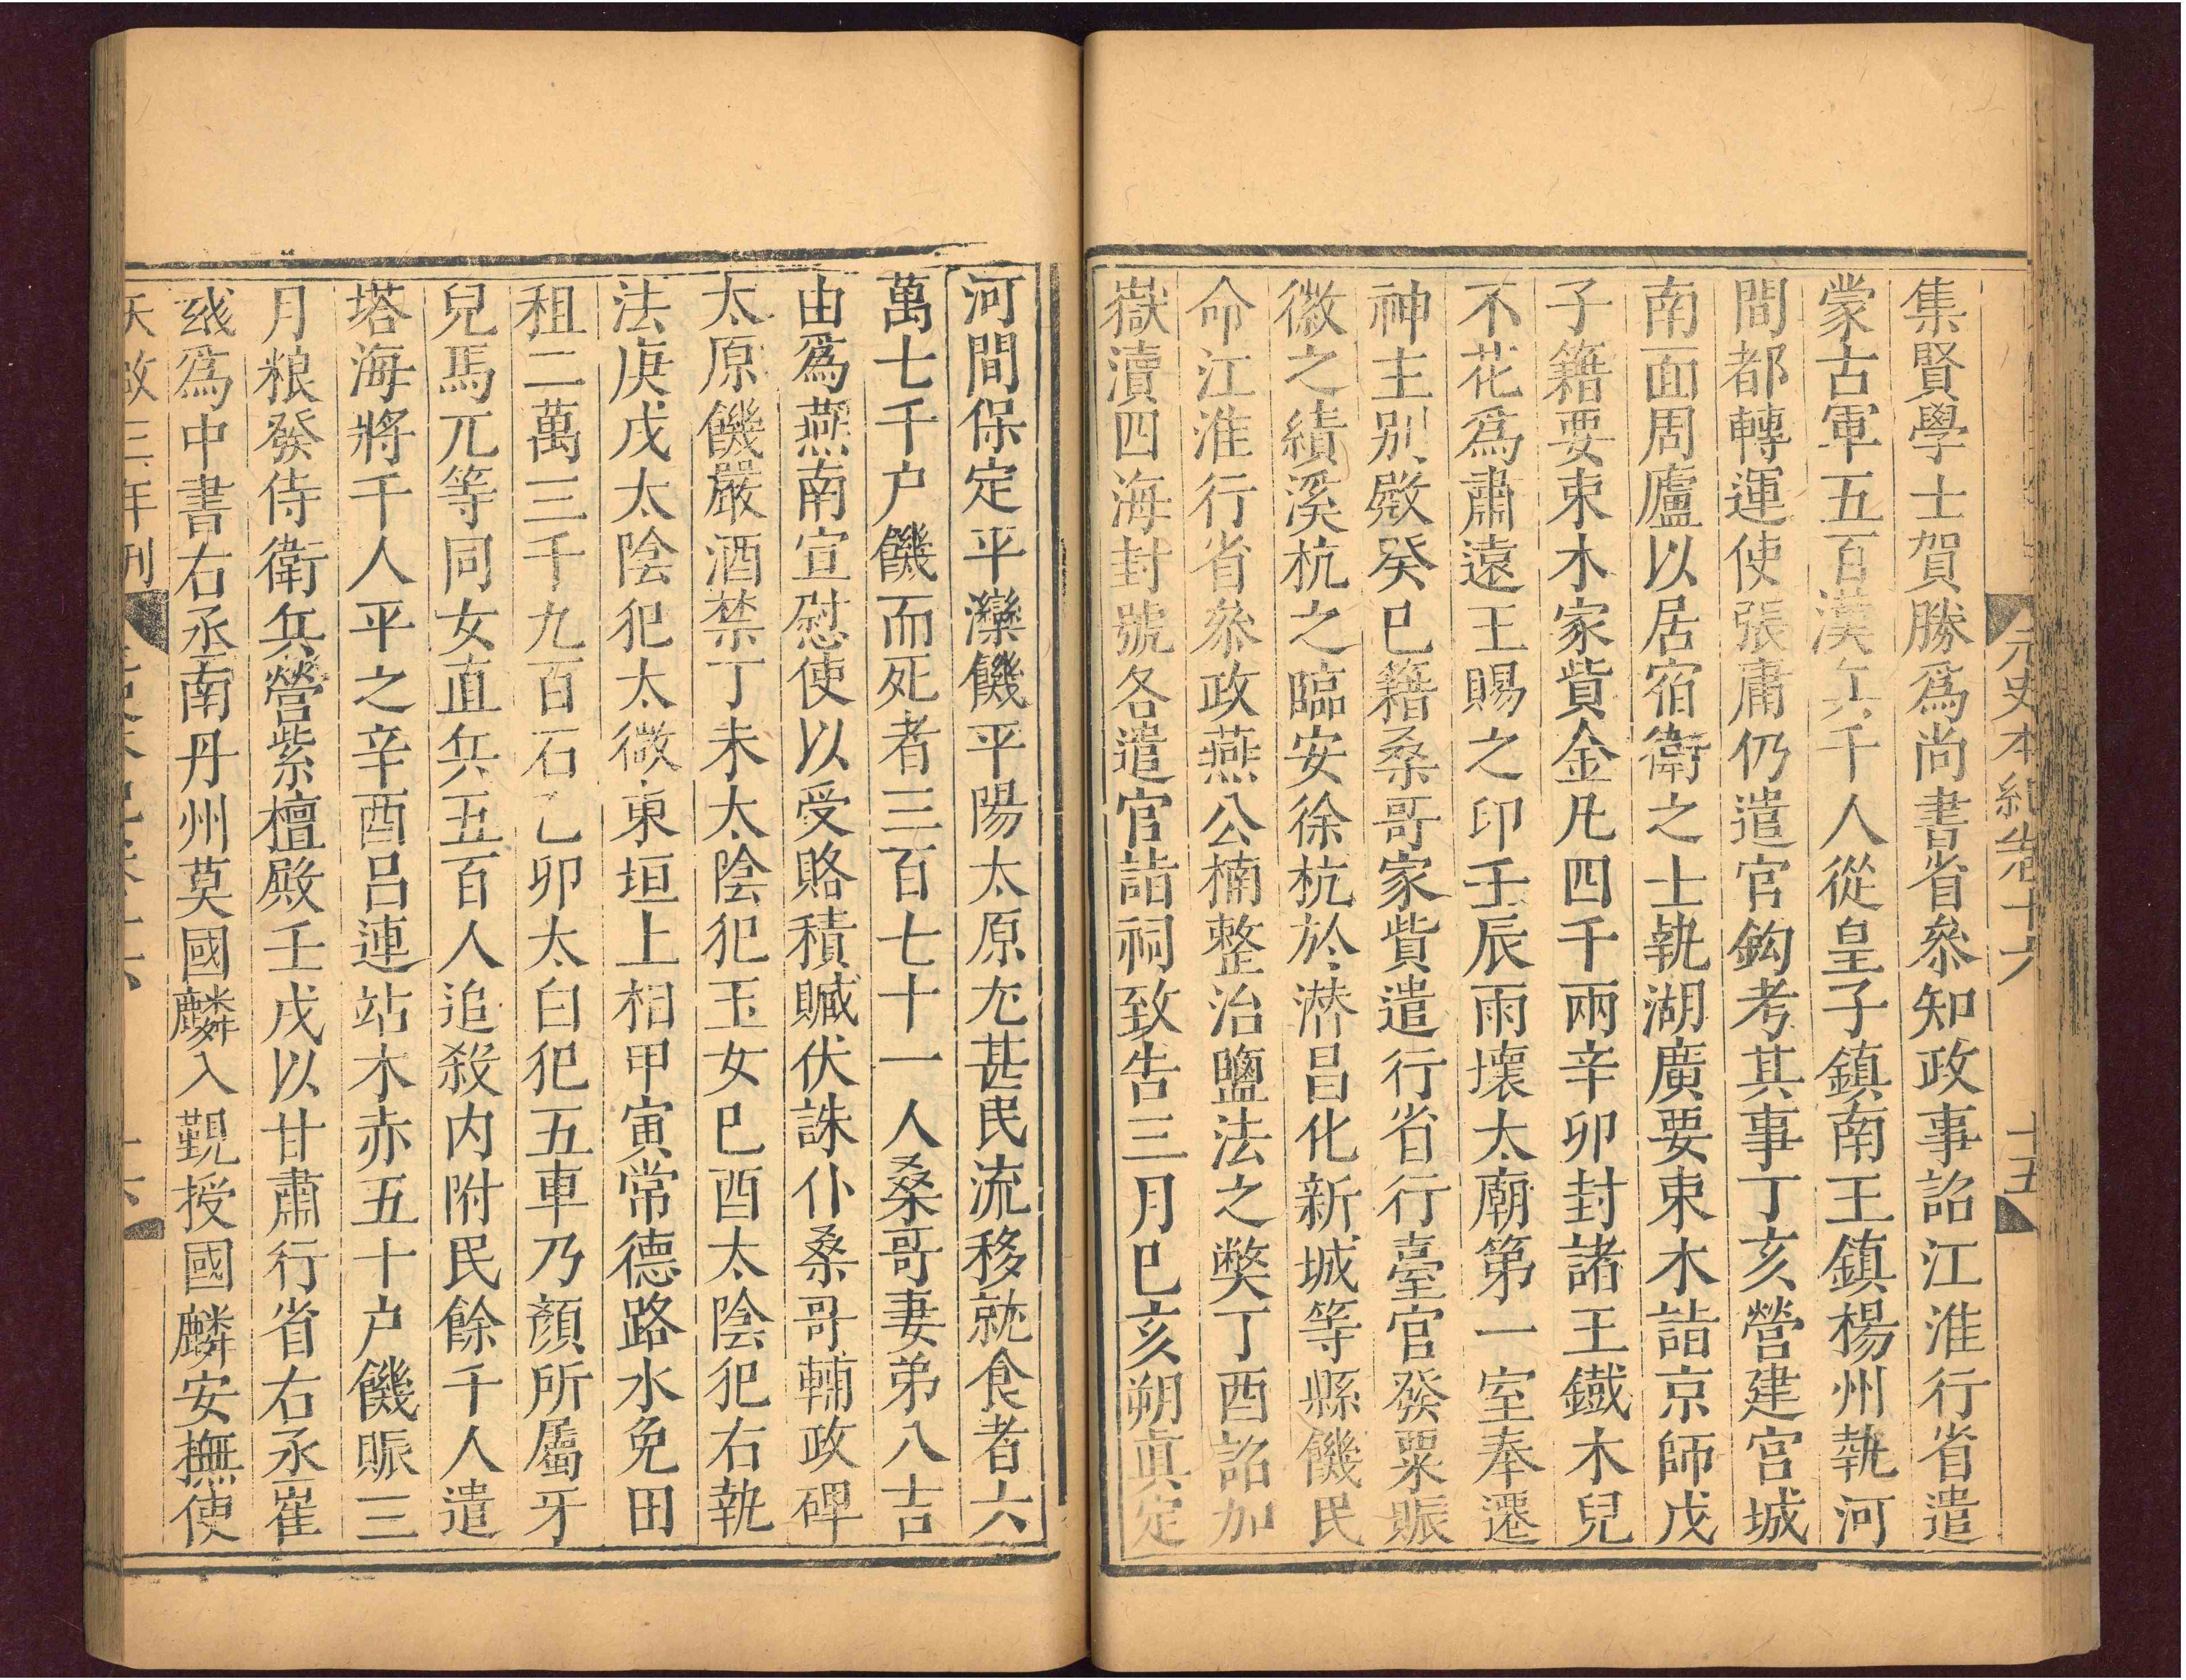 元史本紀卷十六
十五
集賢學士賀勝爲尚書省叅知政事詔江淮行省遣
蒙古軍五百漢兵千人從皇子鎮南王鎮楊州執河
間都轉運使張庸仍遣官鈎考其事丁亥營建宫城
南面周廬以居宿衛之士執湖廣要束木詣京師戊
子籍要束木家貲金凡四千兩辛卯封諸王鐵木兒
不花爲肅遠王賜之印壬辰雨壞太廟第一室奉遷
神主别殿癸巳籍桑哥家貲遣行省行臺官發粟賑
徽之績溪杭之臨安餘杭於潛昌化新城等縣饑民
命江淮行省叅政燕公楠整治鹽法之弊丁酉詔加
嶽瀆四海封號各遣官詣祠致告三月巳亥朔眞定
河間保定平灤饑平陽太原尤甚民流移就食者六
萬七千户饑而死者三百七十一人桑哥妻弟八吉
由爲燕南宣慰使以受賂積贓伏誅仆桑哥輔政碑
太原饑嚴酒禁丁未太陰犯玉女巳酉太陰犯右執
法庚戌太陰犯太微東垣上相甲寅常德路水免田
租二萬三千九百石乙卯太白犯五車乃顏所屬牙
兒馬兀等同女直兵五百人追殺内附民餘千人遣
塔海將千人平之辛酉吕連站木赤五十户饑賑三
月粮發侍衛兵營紫檀殿壬戌以甘肅行省右丞崔
彧爲中書右丞南丹州莫國麟入覲授國麟安撫使
三年刊